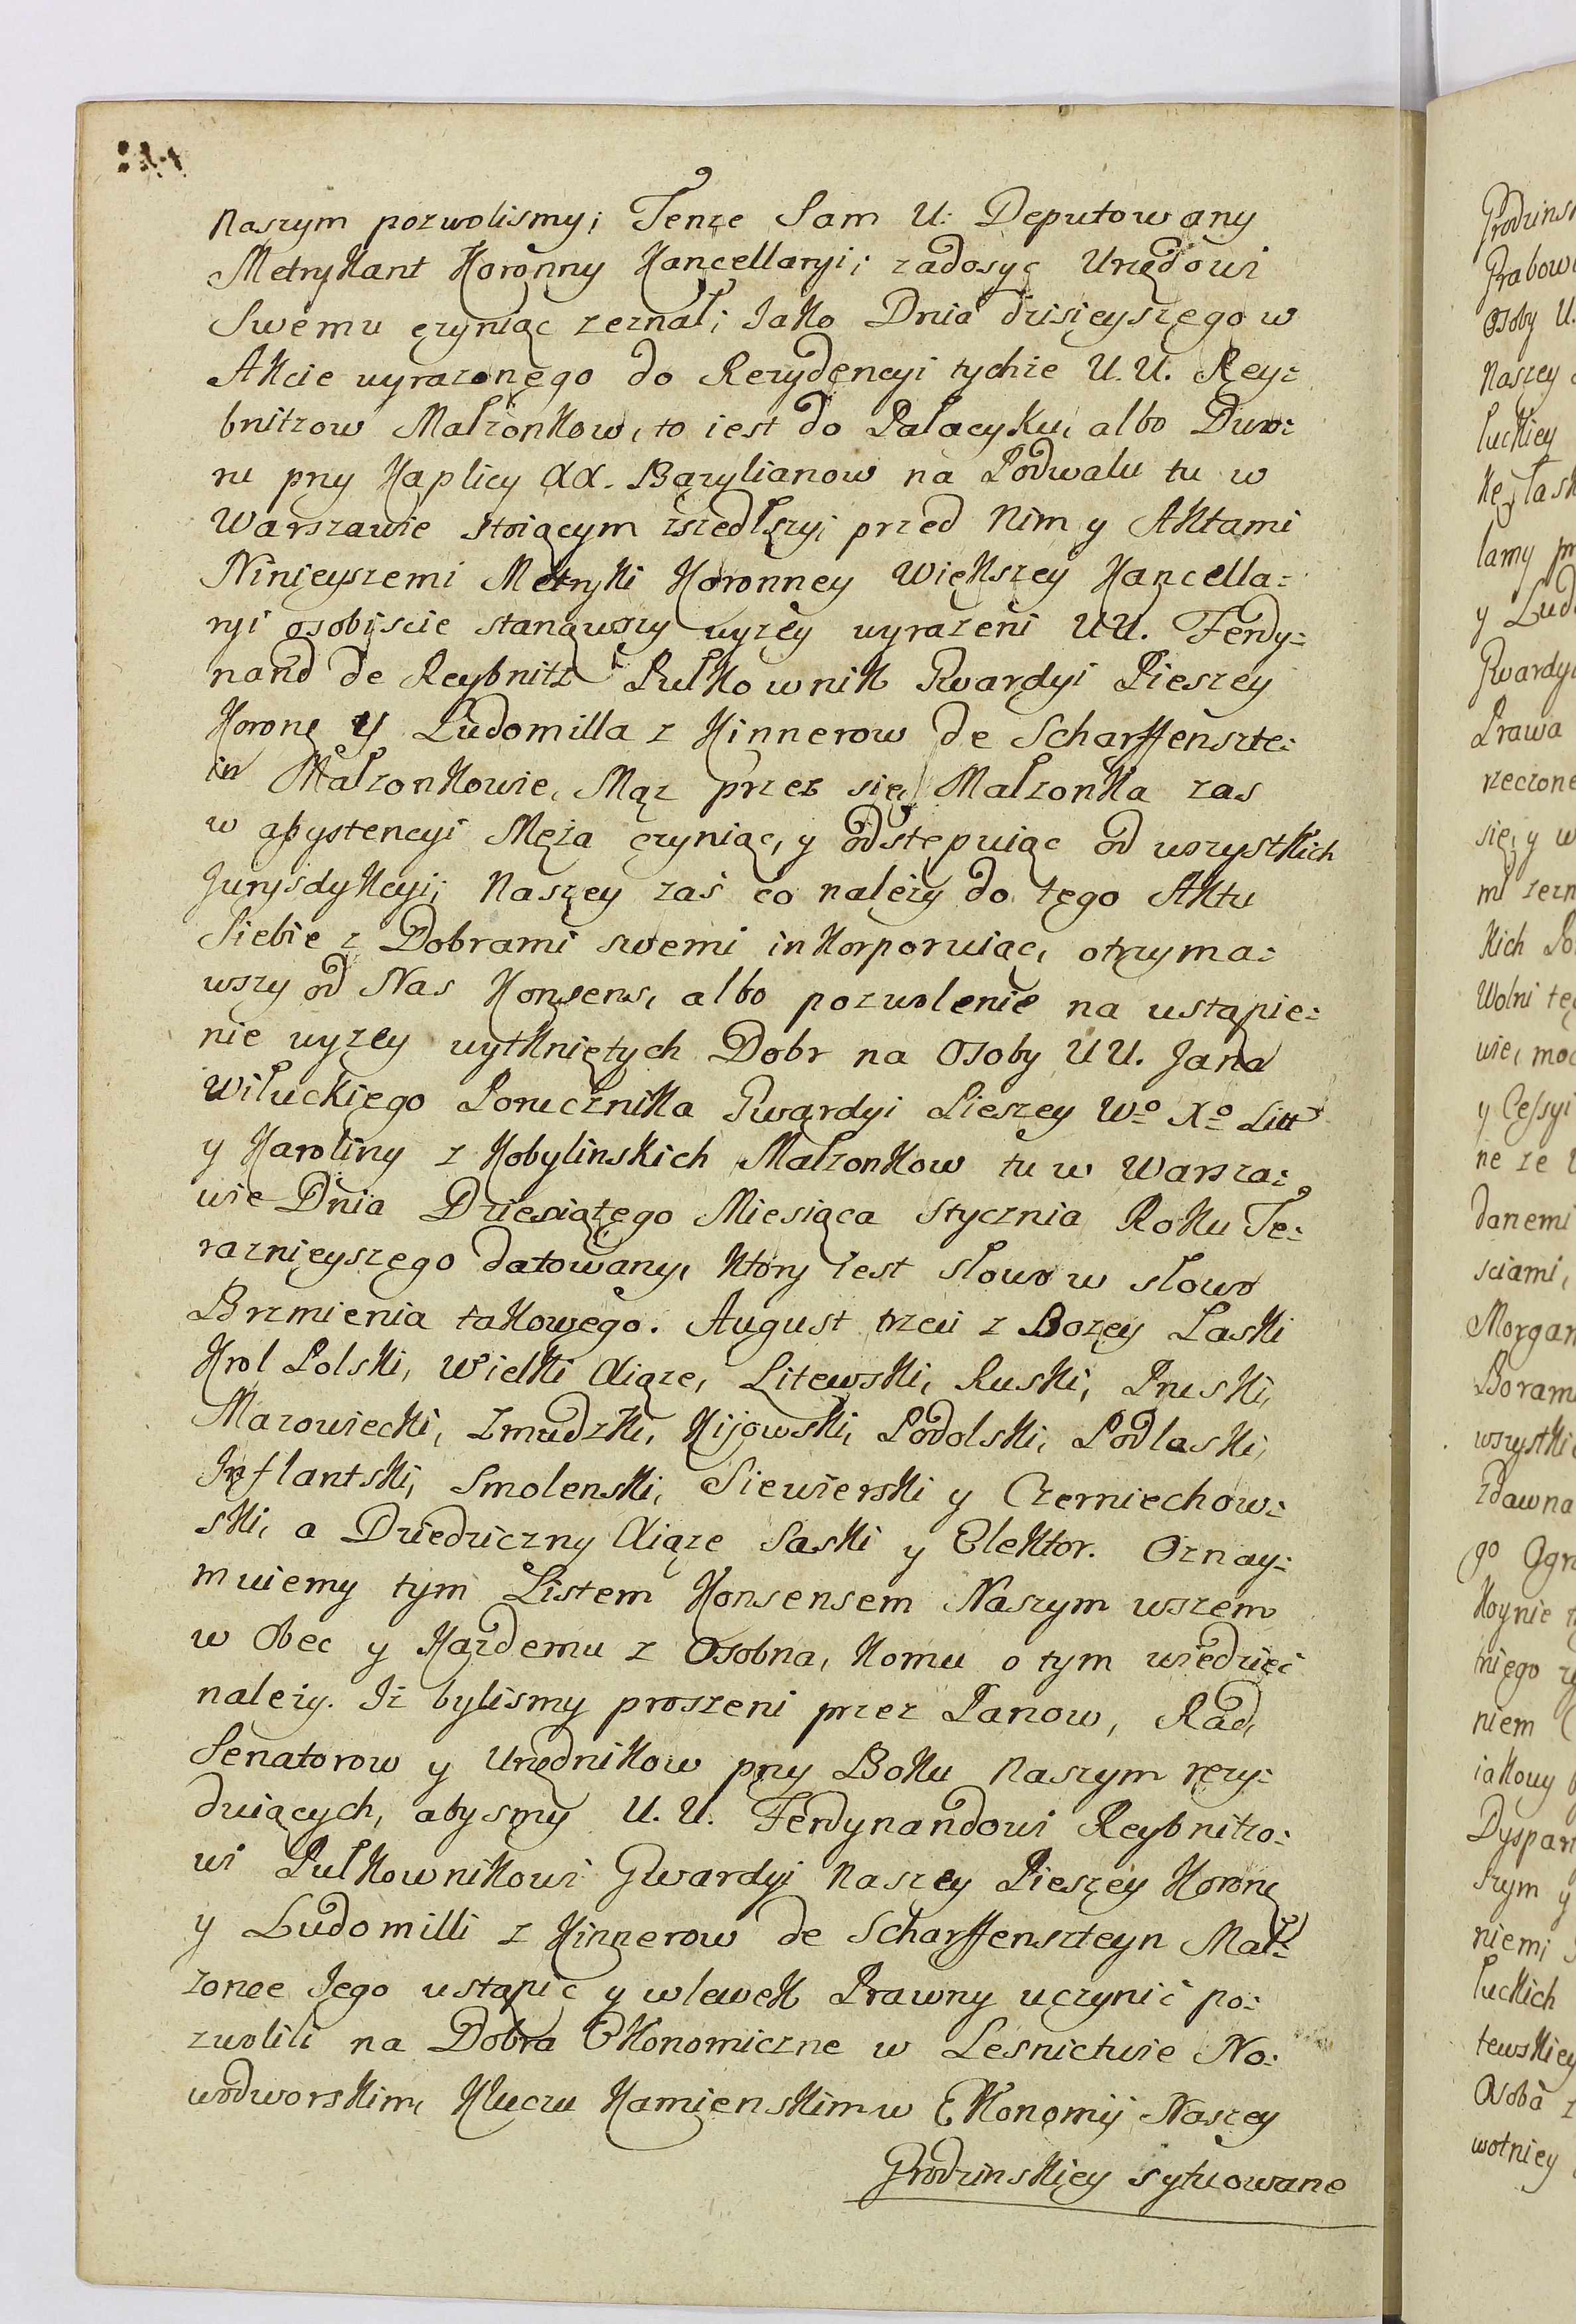 Naszym pozwolismy; Tenze Sam U. Deputowany
Metrykant Koronny Kancellaryi; zadosyc Urzędowi
Swemu czyniąc zeznał; Jako Dnia dzisieyszego w
Akcie wyrazonego do Rezydencyi tychze U. U. Rey=
bnitzow Małzonkow, to iest do Pałacyku, albo Dwo=
ru przy Kaplicy XX. Bazylianow na Podwalu tu w
Warszawie stoiącym zszedłszy; przed Nim y Aktami
Ninieyszemi Metryki Koronney Większey Kancella=
ryi osobiscie stanąwszy wyzey wyrazeni UU. Ferdy=
nand de Reybnitz Pułkownik Gwardyi Pieszey
Koronę y Ludomilla z Kinnerow de Scharffenszte=
in Małzonkowie, Mąz przez się, Małzonka zas
w assystencyi Męża czyniąc, y odstępuiąc od wszystkich
Jurysdykcyi; Naszey zaś co należy do tego Aktu
Siebie z Dobrami swemi inkorporuiąc, otrzyma=
wszy od Nas Konsens, albo pozwolenie na ustąpie=
nie wyzey wytkniętych Dobr na Osoby UU. Jana
Wiłuckiego Porucznika Gwardyi Pieszey Wo Xo Litt
y Karoliny z Kobylinskich Małzonkow tu w Warsza=
wie Dnia Dziesiątego Miesiąca Stycznia Roku Te=
raznieyszego datowany, który iest słowo w słowo
Brzmienia takowego. August trzeci z Bozey Łaski
Krol Polski, Wielki Xiąze, Litewski, Ruski, Pruski,
Mazowiecki, Zmudzki, Kijowski, Podolski, Podlaski,
Inflantski, Smolenski, Siewierski y Czerniechow=
ski, a Dziedziczny Xiąze Saski y Elektor. Oznay=
muiemy tym Listem Konsensem Naszym wszem
w Obec y Kazdemu z Osobna, komu o tym wiedzieć
należy. Iż bylismy proszeni przez Panow, Rad,
Senatorow y Urzędnikow przy Boku Naszym rezy=
duiących, abysmy U. U. Ferdynandowi Reybnitzo=
wi Pułkownikowi Gwardyi Naszey Pieszey Koronę
y Ludomilli z Kinnerow de Scharffenszteyn Mał=
zonce Jego ustąpić y wlewek Prawny uczynić po=
zwolili na Dobra Ekonomiczne w Lesnictwie No=
wodworskim, Kluczu Kamienskim w Ekonomij Naszey
Grodzinskiey sytuowane